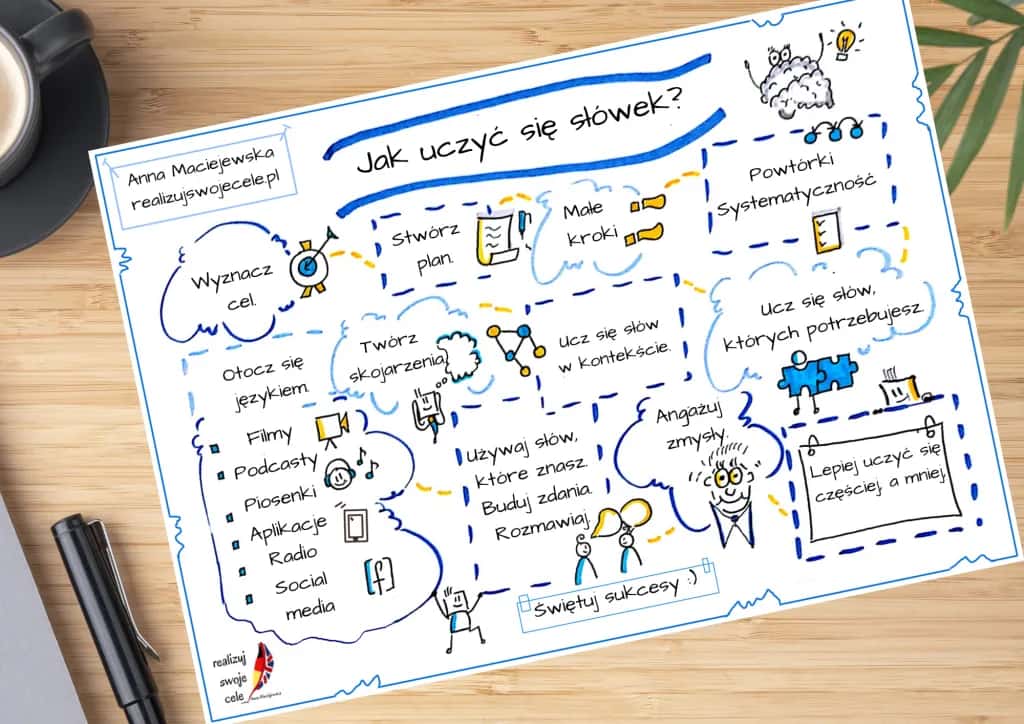 Anna Maciejewska
realizujswojecele.pl
Jak uczyć się słówek?
Wyznacz
cel.
Stwórz
plan.
Małe
kroki
Powtórki
Systematyczność
Otocz się
językiem.
Filmy
Podcasty
Piosenki
Aplikacje
Radio
Social
media
Twórz
skojarzenia
Ucz się słów
w kontekście.
Ucz się słów,
których potrzebujesz
Używaj słów,
które znasz.
Buduj zdania.
Rozmawiaj.
Angażuj
zmysły.
Lepiej uczyć się
częściej a mniej.
Świętuj sukcesy :)
realizuj
swoje
cele